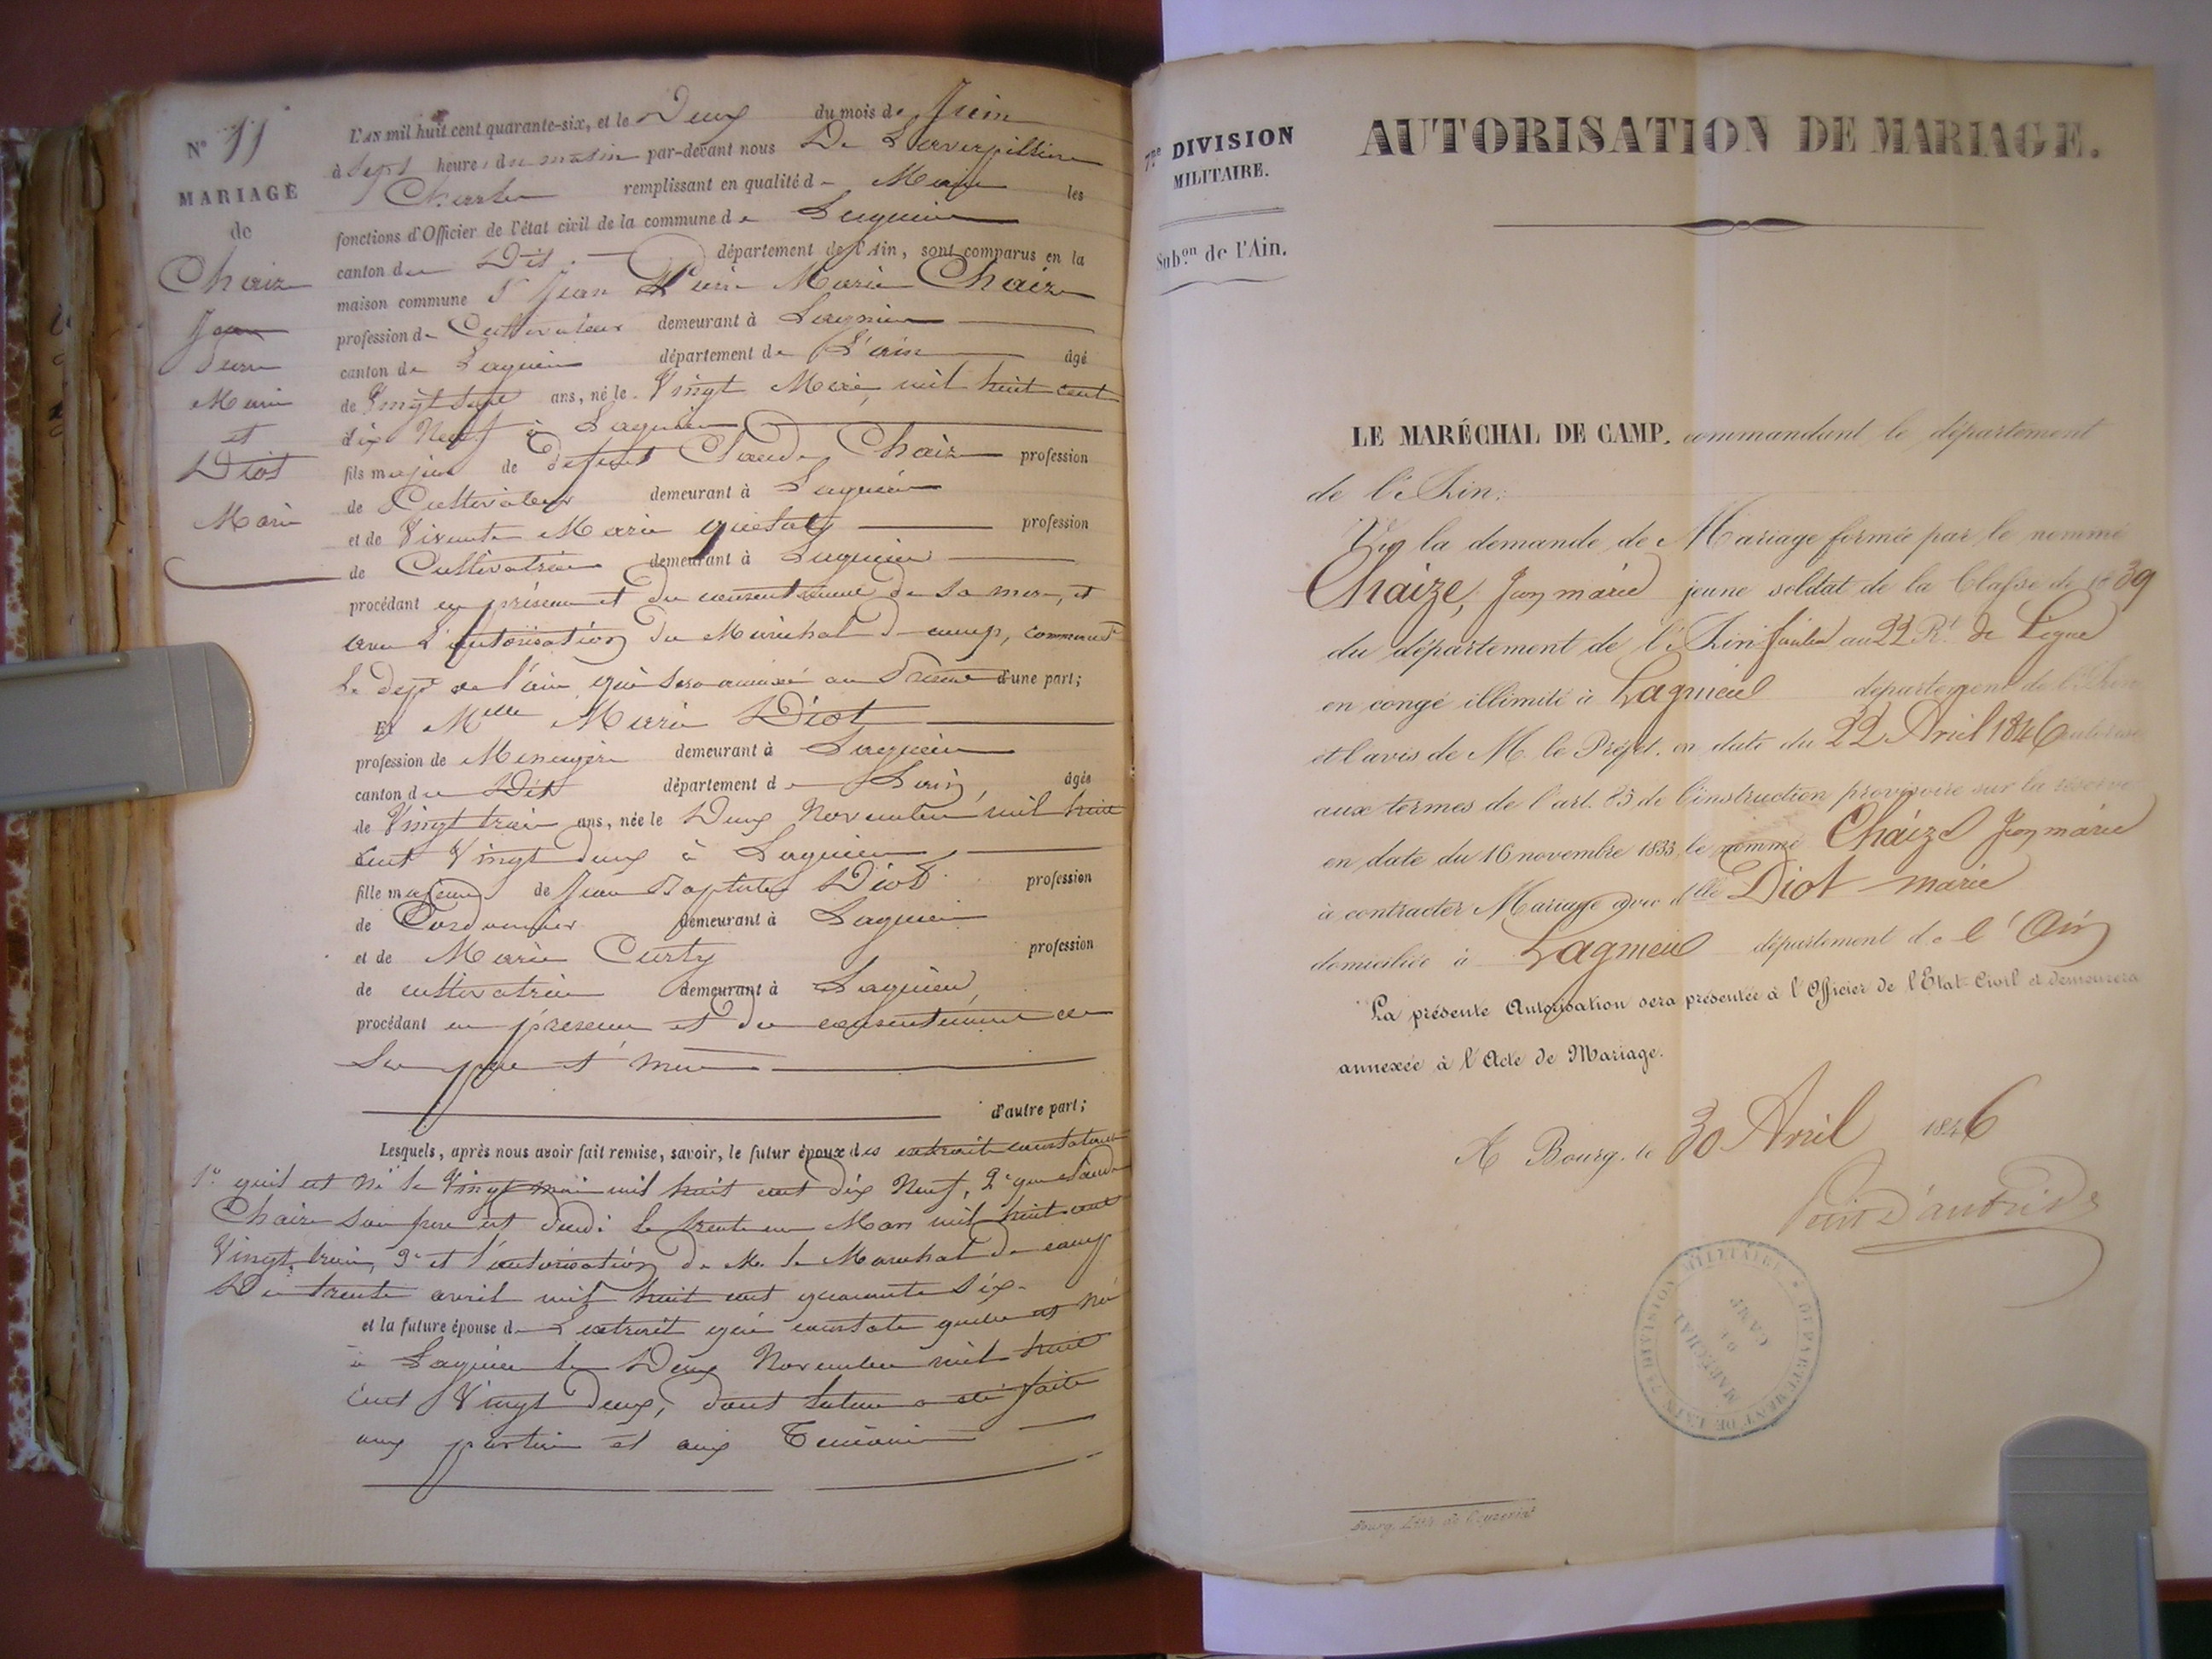 N° 11
MARIAGE
de
Chaize
Jean
Pierre
Marie
et
Diot
Marie
L'AN mil huit cent quarante-six, et le Deux du mois de Juin
à Sept heures du matin par-devant nous De
Charles remplissant en qualité de Maire les
fonctions d'Officier de l'état civil de la commune de Lagnieu
canton du Dit département de l'Ain, sont comparus en la
maison commune Sr Jean Pierre Marie Chaize
profession de Cultivateur demeurant à Lagnieu
canton de Lagnieu département de L'ain âgé
de Vingt Sept ans, né le Vingt Mai mil huit cent
dix Neuf à Lagnieu
fils majeur de défunt Claude Chaize profession
de Cultivateur demeurant à Lagnieu
et de Vivante Marie profession
de Cultivatrice demeurant à Lagnieu
procédant en présence et du consentement de sa mere, et
avec l'autorisation du Maréchal de camp, commandt
le dept de l'ain qui sera annexé au d'une part;
Et Melle Marie Diot
profession de Menagère demeurant à Lagnieu
canton du Dit département de Lain, âgée
de Vingt trois ans, née le Deux Novembre mil huit
cent Vingt deux à Lagnieu
fille majeure de Jean Baptiste Diot profession
de Cordonnier demeurant à Lagnieu
et de Marie Curty profession
de cultivatrice demeurant à Lagnieu
procédant en présence et du consentement de
Ses père et mère
d'autre part;
Lesquels, après nous avoir fait remise, savoir, le futur époux des extraits constatant
1° quil est né le Vingt mai mil huit cent dix Neuf, 2° que Claude
Chaize son père est décédé le trente un Mars mil huit cent
Vingt trois, 3° et l'autorisation de M. le Marechal de camp
Du trente avril mil huit cent quarante Six
et la future épouse de L'extrait qui constate quelle est né
à Lagnieu le Deux Novembre mil huit
cent Vingt Deux, dont lecture a été faite
aux parties et aux Témoins
7me DIVISION
MILITAIRE.
Subon de l'Ain.
AUTORISATION DE MARIAGE.
LE MARÉCHAL DE CAMP, commandant le département
de l'Ain;
Vu la demande de Mariage formée par le nommé
Chaize, Jean marie jeune soldat de la Classe de 1839
du département de l'Ain au 22 Rt de Ligne
en congé illimité à Lagnieu département de l'Ain
et l'avis de M. le Préfet en date du 22 Avril 1846 autorise
aux termes de l'art. 85 de l'instruction provisoire sur la réserve
en date du 16 novembre 1833, le nommé Chaize Jean marie
à contracter Mariage avec dlle Diot marie
domiciliée à Lagnieu département de l'Ain
La présente Autorisation sera présentée à l'Officier de l'Etat-Civil et demeurera
annexée à l'Acte de Mariage.
A Bourg, le 30 Avril 1846
7e DIVISION MILITAIRE * DEPARTEMENT DE L'AIN
MARECHAL
DE
CAMP